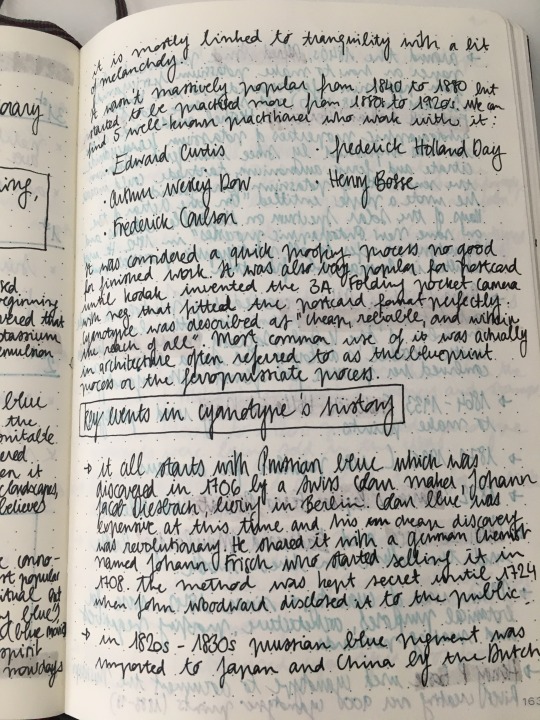 orary
ing,
eginning
vered that
otassium
emulsion
blue
the
ered
en it
landscapes,
believes
e conno-
st popular
itual
y blue?
d blue
spirit
nowdays
it is mostly linked to tranquility with a bit
of melancholy.
It wasn't massively popular from 1840 to 1880 but
started to be practised more from 1880s to 1920s. We can
find 5 well-known practitioner who work with it:
· Edward Curtis · Frederick Holland Day
· Arthur Wesley Dow · Henry Bosse
· Frederick Coulson
It was considered a quick proofing process no good
for finished work. It was also very popular for postcard
until kodak invented the 3A Folding pocket camera
with neg that fitted the postcard format perfectly.
Cyanotype was described as "cheap, reliable, and within
the reach of all". Most common use of it was actually
in architecture often referred to as the blueprint
process or the ferroprussiate process.
Key events in cyanotype's history
→ it all starts with Prussian blue which was
discovered in 1706 by a swiss colour maker, Johann
Jacob Diesbach living in Berlin. Colour blue was
expensive at this time and his cheap discovery
was revolutionary. He shared it with a german chemist
named Johann Frisch who started selling it in
1708. the method was kept secret until 1724
when John Woodward disclosed it to the public.
→ in 1820s - 1830s prussian blue pigment was
imported to Japan and China by the Dutch
163